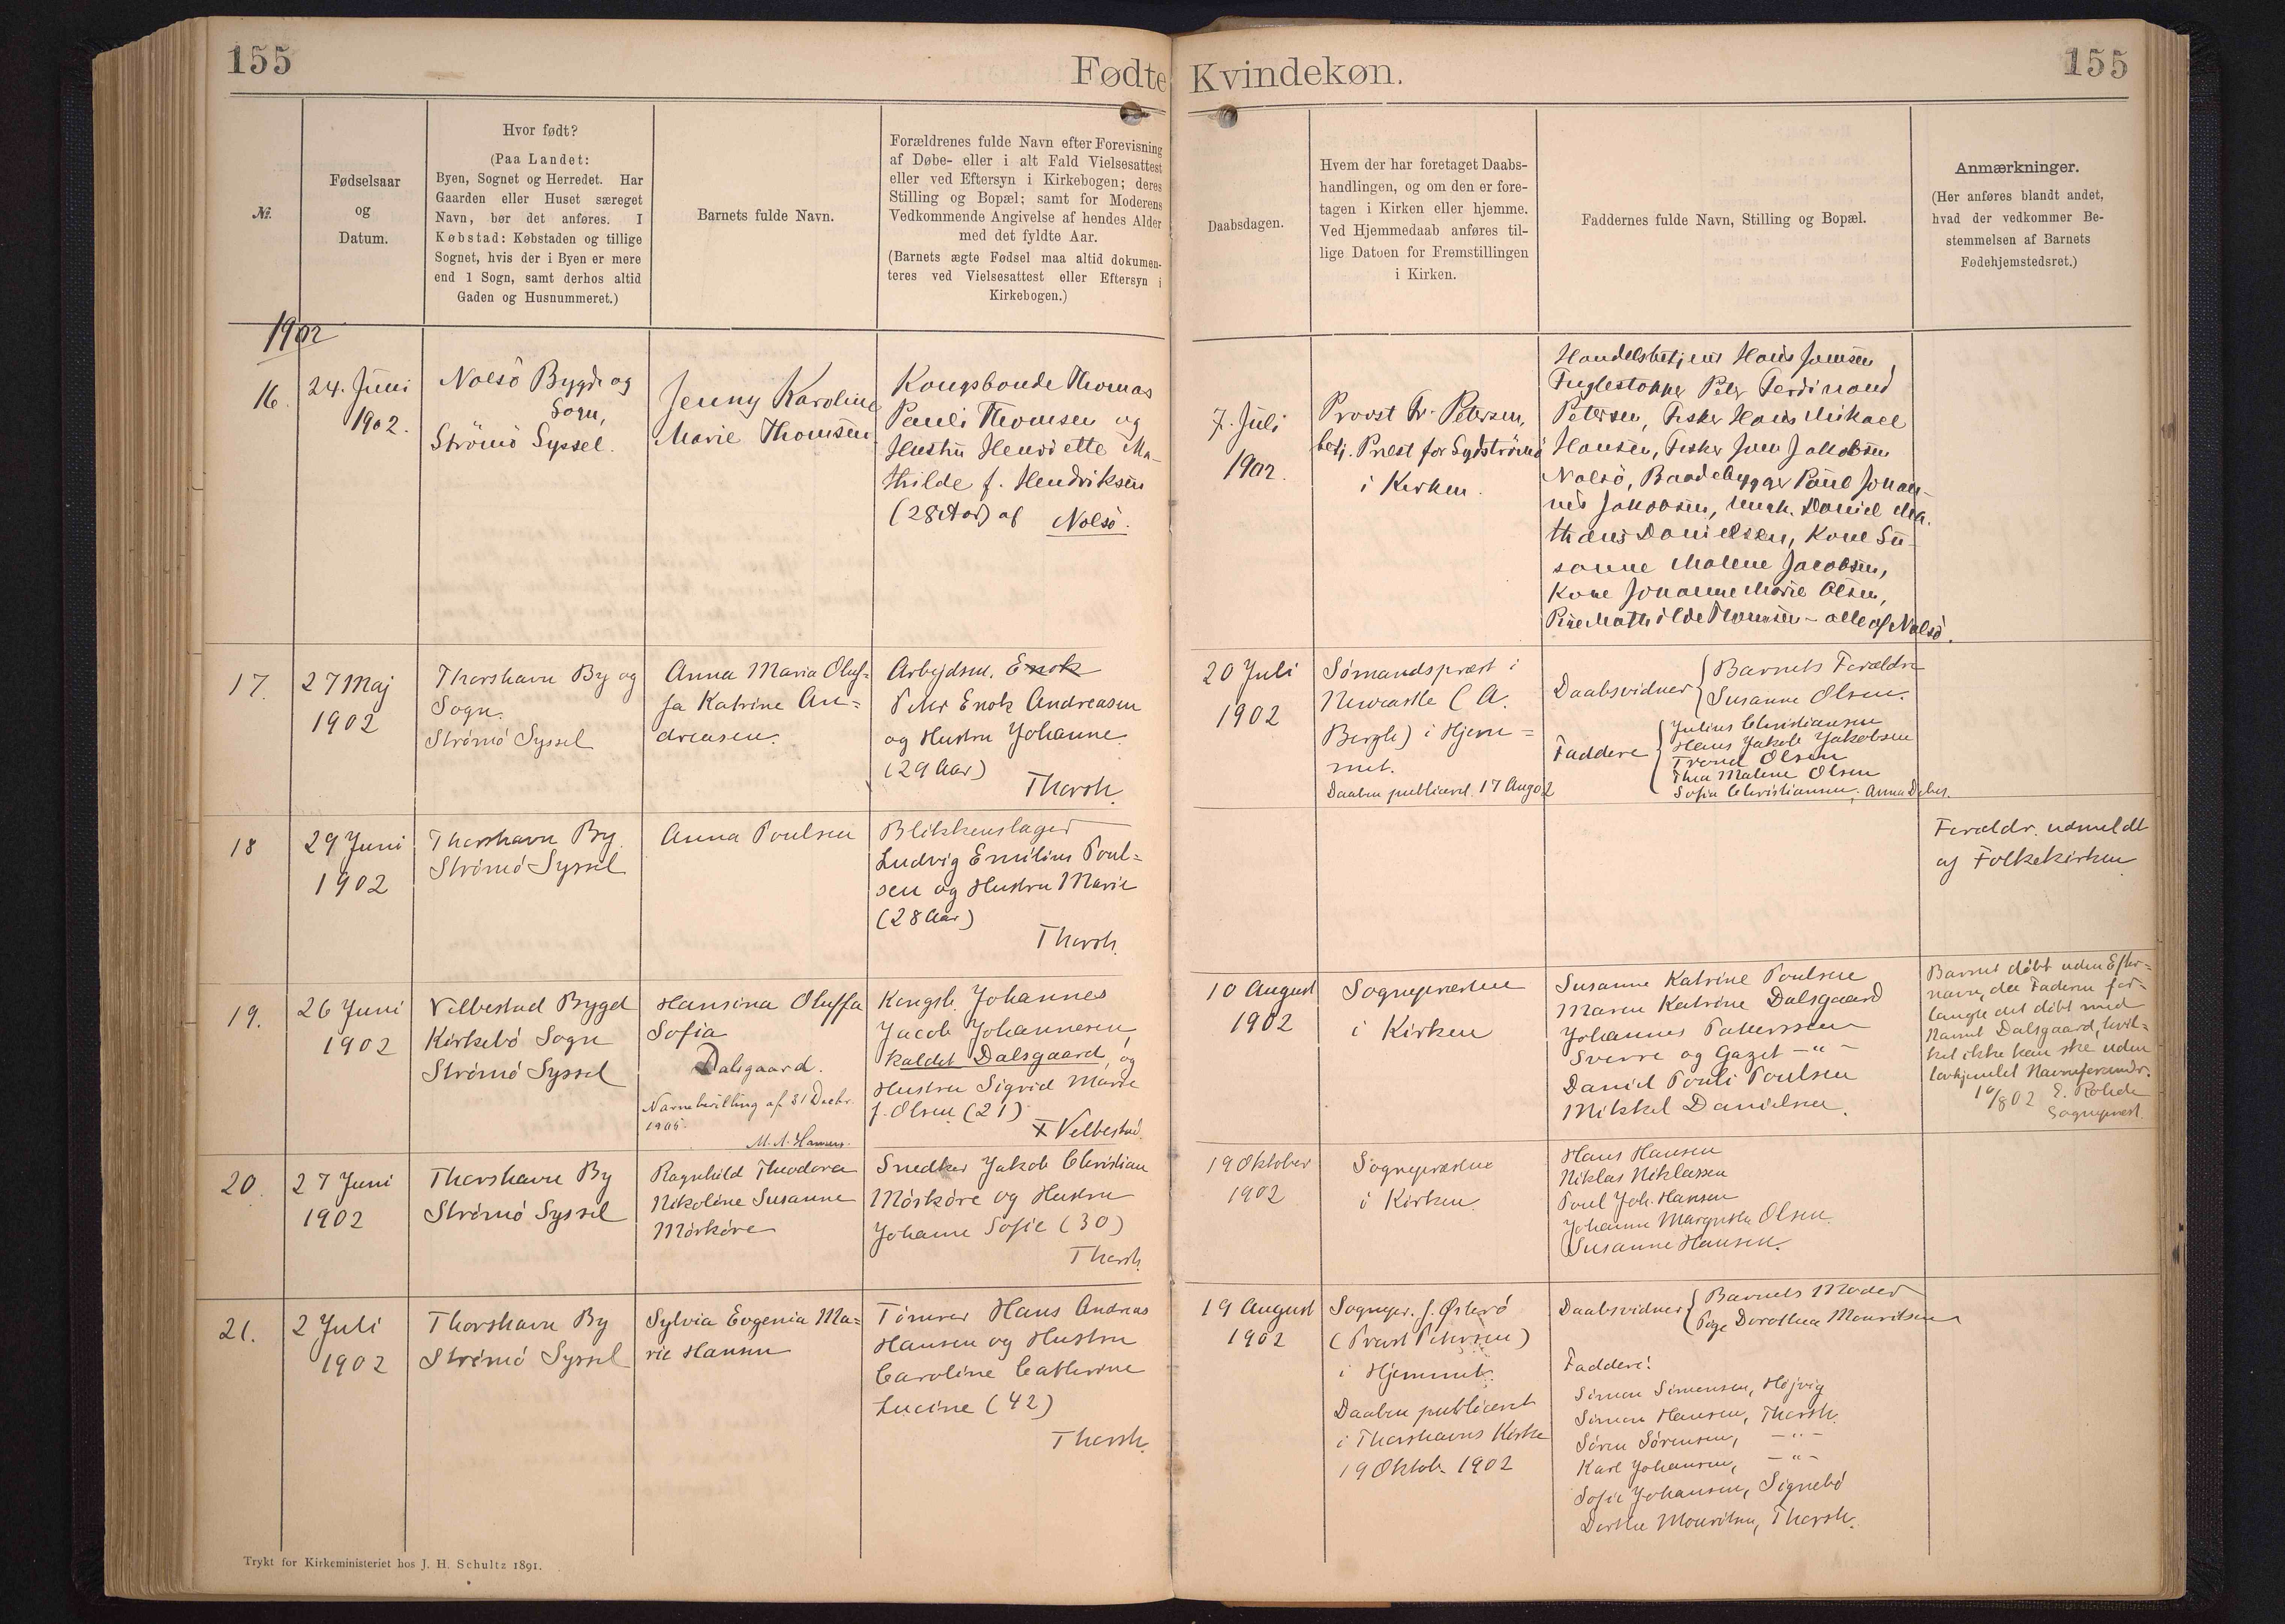 155
Fødte Kvindekøn.
155
№.
Fødselsaar
og
Datum.
Hvor født?
(Paa Landet:
Byen, Sognet og Herredet. Har
Gaarden eller Huset særeget
Navn, bør det anføres. I
Købstad: Købstaden og tillige
Sognet, hvis der i Byen er mere
end 1 Sogn, samt derhos altid
Gaden og Husnummeret.)
Barnets fulde Navn.
Forældrenes fulde Navn efter Forevisning
af Døbe- eller i alt Fald Vielsesattest
eller ved Eftersyn i Kirkebogen; deres
Stilling og Bopæl; samt for Moderens
Vedkommende Angivelse af hendes Alder
med det fyldte Aar.
(Barnets ægte Fødsel maa altid dokumen-
teres ved Vielsesattest eller Eftersyn i
Kirkebogen.)
Daabsdagen.
Hvem der har foretaget Daabs-
handlingen, og om den er fore-
tagen i Kirken eller hjemme.
Ved Hjemmedaab anføres til-
lige Datoen for Fremstillingen
i Kirken.
Faddernes fulde Navn, Stilling og Bopæl.
Anmærkninger.
(Her anføres blandt andet,
hvad der vedkommer Be-
stemmelsen af Barnets
Fødehjemstedsret.)
1902
16.
24. Juni
1902.
Nolsö Bygd og
Sogn,
Strömö Syssel.
Jenny Karoline
Marie Thomsen
Kongsbonde Thomas
Pauli Thomsen og
Hustru Henriette Ma-
thilde f. Hendriksen
(28 Aar) af Nolsö.
7. Juli
1902.
Provst Fr. Petersen,
betj. Præst for Sydströmö
i Kirken.
Handelsbetjent Hans Jensen,
Peter Ferdinand
Petersen, Fisker Hans Mikael
Hansen, Fisker Jacobsen
Nolsö, Baadebygger Paul Johan-
nes Jakobsen, Daniel Ma-
thæus Danielsen, Kone Su-
sanne Malene Jacobsen,
Kone Johanne Marie Olsen,
Pige Mathilde Thomsen – alle af Nolsö.
17.
27 Maj
1902
Thorshavn By og
Sogn.
Strömö Syssel
Anna Maria Oluf-
fa Katrine An=
dreasen.
Arbejdsm. Enok
Peter Enok Andreasen
og Hustru Johanne
(29 Aar)
Thorsh.
20 Juli
1902
Sømandspræst i
Newcastle (A.
Bergh) i Hjem=
met.
Daaben publiceret 17 Aug 02
Daabsvidner
Barnets Forældre
Susanne Olsen.
Faddere
Julius Christiansen
Hans Jakob Jakobsen
Trond Olsen
Thea Malene Olsen
Sofia Christiansen, Anna Debes.
18
29 Juni
1902
Thorshavn By
Strömö Syssel
Anna Poulsen
Blikkenslager
Ludvig Emilius Poul=
sen og Hustru Marie
(28 Aar)
Thorsh.
Forældr. udmeldt
af Folkekirken
19.
26 Juni
1902
Velbestad Bygd
Kirkebö Sogn
Strömö Syssel
Hansina Oluffa
Sofia
Dalsgaard.
Navnebevilling af 31 Decbr.
M. A. Hansen.
Kongsb. Johannes
Jacob Johannesen,
kaldet Dalsgaard, og
Hustru Sigrid Marie
f. Olsen (21)
Velbestad
10 August
1902
Sognepræsten
i Kirken
Susanne Katrine Poulsen
Maren Katrine Dalsgaard
Johannes Patursson
Sverre og Gazet – " –
Daniel Pouli Poulsen
Mikkel Danielsen.
Barnet döbt uden Efter=
navn, da Faderen for=
langte det döbt med
Navnet Dalsgaard, hvil=
ket ikke kan ske uden
lovhjemlet Navneforandr.
10/8 02 E. Rohde
Sognepræst.
20.
27 Juni
1902
Thorshavn By
Strömö Syssel
Ragnhild Theodora
Nikoline Susanne
Mörköre
Snedker Jakob Christian
Mörköre og Hustru
Johanne Sofie (30)
Thorsh.
19 Oktober
1902
Sognepræsten
i Kirken.
Hans Hansen
Niklas Niklassen
Poul Joh. Hansen
Johanne Margrethe Olsen.
Susanne Hansen.
21.
2 Juli
1902
Thorshavn By
Strömö Syssel
Sylvia Eugenia Ma=
rie Hansen
Tömrer Hans Andreas
Hansen og Hustru
Caroline Catherine
Lucine (42)
Thorsh.
19 August
1902
Sognepr. f. Østerö
(Provst Petersen)
i Hjemmet.
Daaben publiceret
i Thorshavns Kirke
19 Oktob. 1902
Daabsvidner
Barnets Moder
Pige Dorothea Mouritsen
Faddere:
Simon Simonsen, Højvig
Simon Hansen, Thorsh.
Sören Sörensen, – " –
Karl Johansen, – " –
Sofie Johansen, Signebö
Dorthe Mouritsen, Thorsh.
Trykt for Kirkeministeriet hos J. H. Schultz 1891.